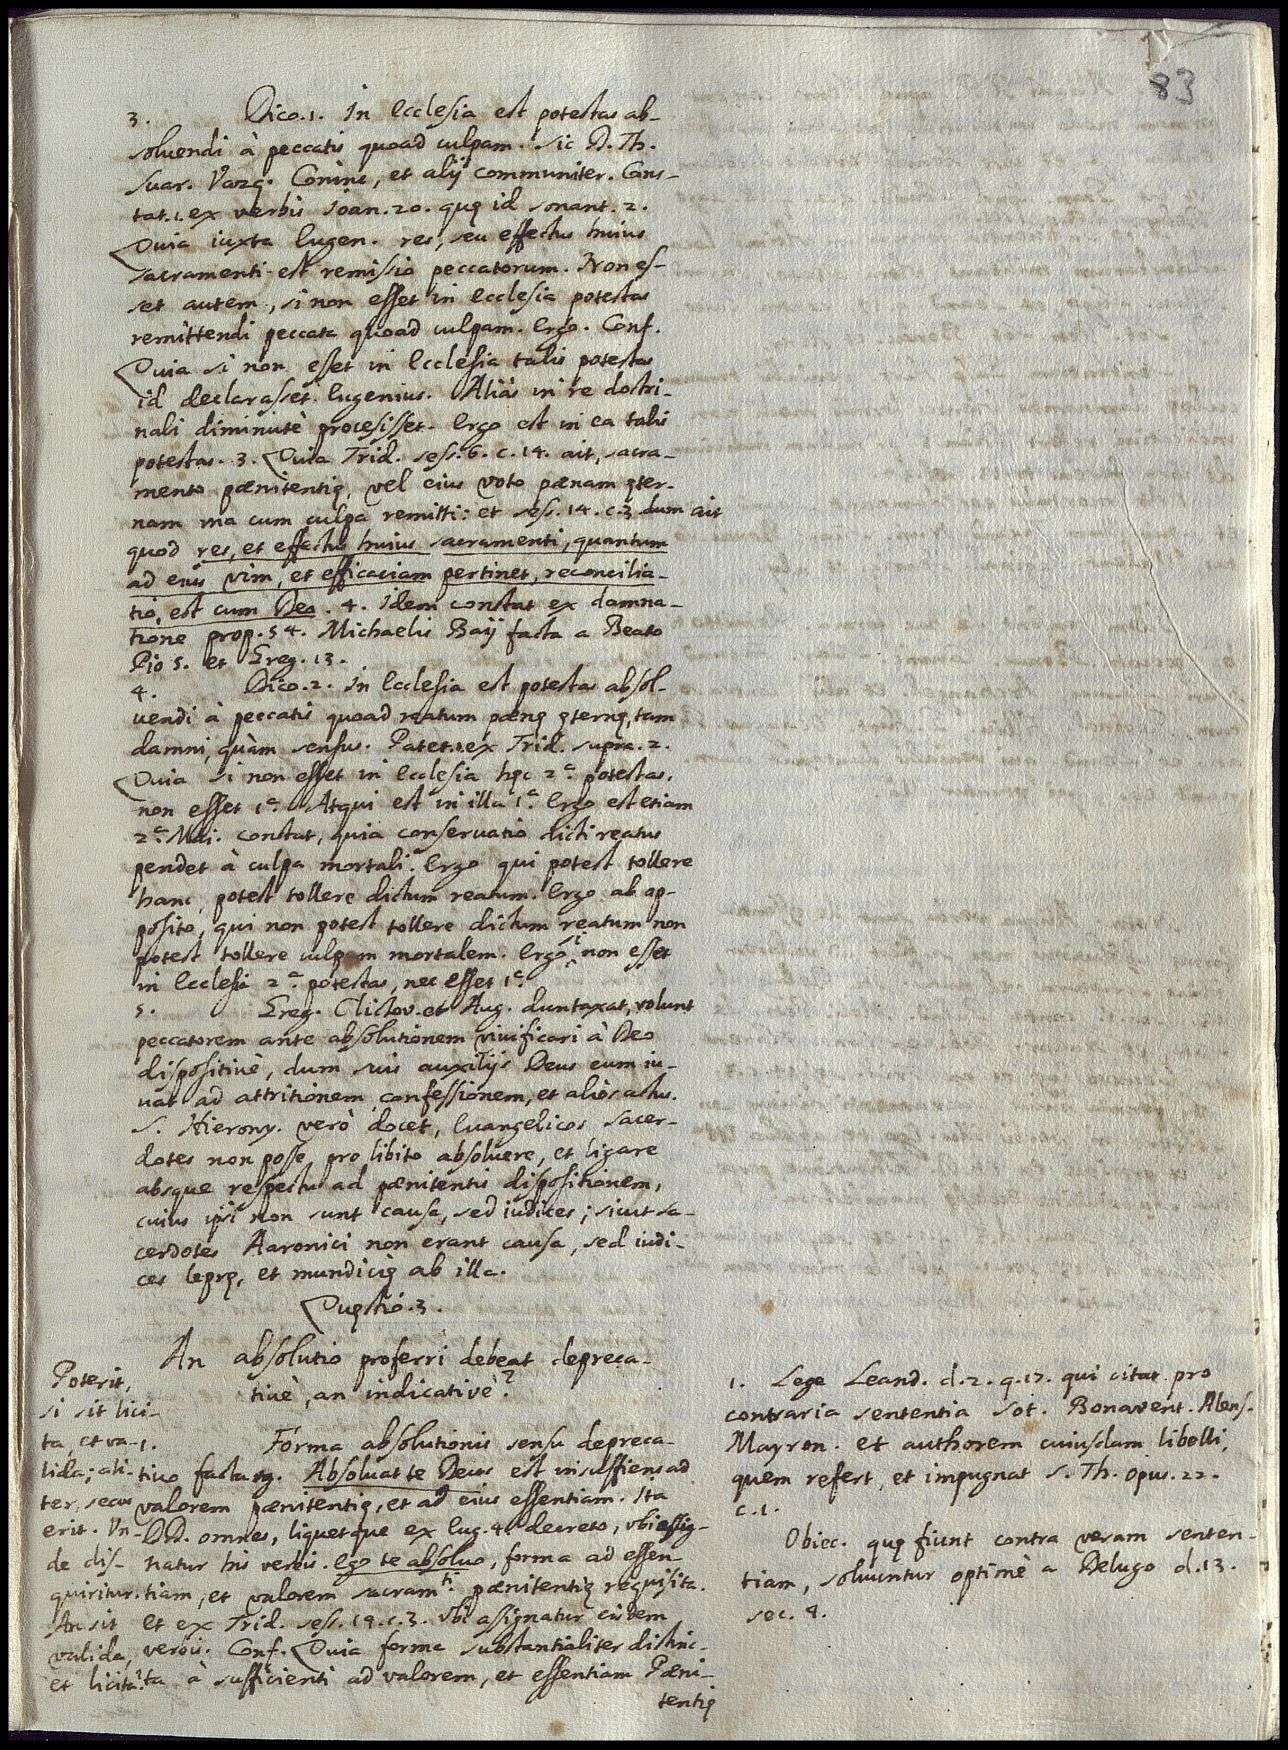 83
3. Dico.1. In Ecclesia est potestas ab-
soluendi à peccatis quoad culpam. Sic D. Th.
Suar. Vazq. Coninc, et alij communiter. Cons-
tat.1. ex verbis Ioan.20. quę id sonant. 2.
Quia iuxta Eugen. res, seu effectus huius
sacramenti est remissio peccatorum. Non es-
set autem, si non esset in Ecclesia potestas
remittendi peccata quoad culpam. Ergo. Conf.
Quia si non esset in Ecclesia talis potestas
id declarasset Eugenius. Aliàs in re doctri-
nali diminutè processisset. Ergo est in ea talis
potestas. 3. Quia Trid. sess.6. c.14. ait, sacra-
mento pænitentię, vel eius voto pænam ęter-
nam una cum culpa remitti: et sess. 14. c.3 dum ait
quod res, et effectus huius sacramenti, quantum
ad eius vim, et efficaciam pertinet, reconcilia-
tio, est cum Deo. 4. Idem constat ex damna-
tione prop.54. Michaelis Baÿ facta a Beato
Pio 5. et Greg. 13.
4. Dico.2. In Ecclesia est potestas absol-
uendi à peccatis quoad reatum pænę ęternę, tam
damni, quàm sensus. Patet.1. ex Trid. supra. 2.
Quia si non esset in Ecclesia hęc 2ª. potestas.
non esset 1ª. Atqui est in illa 1ª. Ergo est etiam
2ª. Mai. constat, quia conseruatio dicti reatus
pendet à culpa mortali. Ergo qui potest tollere
hanc, potest tollere dictum reatum. Ergo ab op-
posito, qui non potest tollere dictum reatum non
potest tollere culpam mortalem. Ergo si non esset
in Ecclesia 2ª. potestas, nec esset 1ª.
5. Greg. Clictov. et Aug. duntaxat, volunt
peccatorem ante absolutionem viuificari à Deo
dispositiuè, dum suis auxilijs Deus eum iu-
uat ad attritionem, confessionem, et alios actus.
S. Hierony. verò docet, Euangelicos sacer-
dotes non posse, pro libito absoluere, et ligare
absque respectu ad pænitentis dispositionem,
cuius ipsi non sunt causa, sed iudices; sicut sa-
cerdotes Aaronici non erant causa, sed iudi-
ces leprę, et mundicię ab illa.
Quęstio.3.
An absolutio proferri debeat depreca-
tiuè, an indicatiuè?
1. Forma absolutionis sensu depreca-
tiuo facta vg. Absoluat te Deus est insufficiens ad
valorem pænitentię, et ad eius essentiam. Ita
DD. omnes, liquetque ex Eug. 4. decreto, ubi assig-
natur his verbis. Ego te absoluo, forma ad essen-
tiam, et valorem sacramti. pænitentię requisita.
Et ex Trid. sess. 14. c.3. ubi assignatur eisdem
verbis. Conf. Quia forma substantialiter distinc-
ta à sufficienti ad valorem, et essentiam Pæni-
tentię
Poterit,
si sit lici-
ta, et va-
lida; ali-
ter, secus
erit. Un-
de dis-
quiritur.
An sit
valida,
et licita?
1. Lege Leand. d.2. q.17. qui citat pro
contraria sententia Sot. Bonavent. Alens.
Mayron. et authorem cuiusdam libelli,
quem refert, et impugnat S. Th. opus. 22.
c.1.
Obiec. quę fiunt contra veram senten-
tiam, soluuntur optimè a Delugo d.13.
sec. 4.